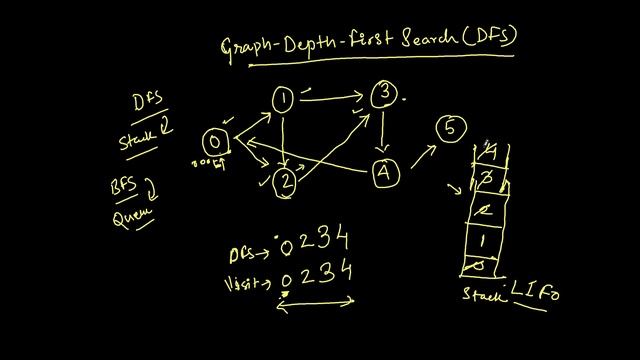 Graph-Depth-First Search(DFS)
DFS
Stack
BFS
Queue
0
1
2
3
4
5
DFS→ 0 2 3 4
Visit→ 0 2 3 4
4
3
2
1
0
Stack LIFO